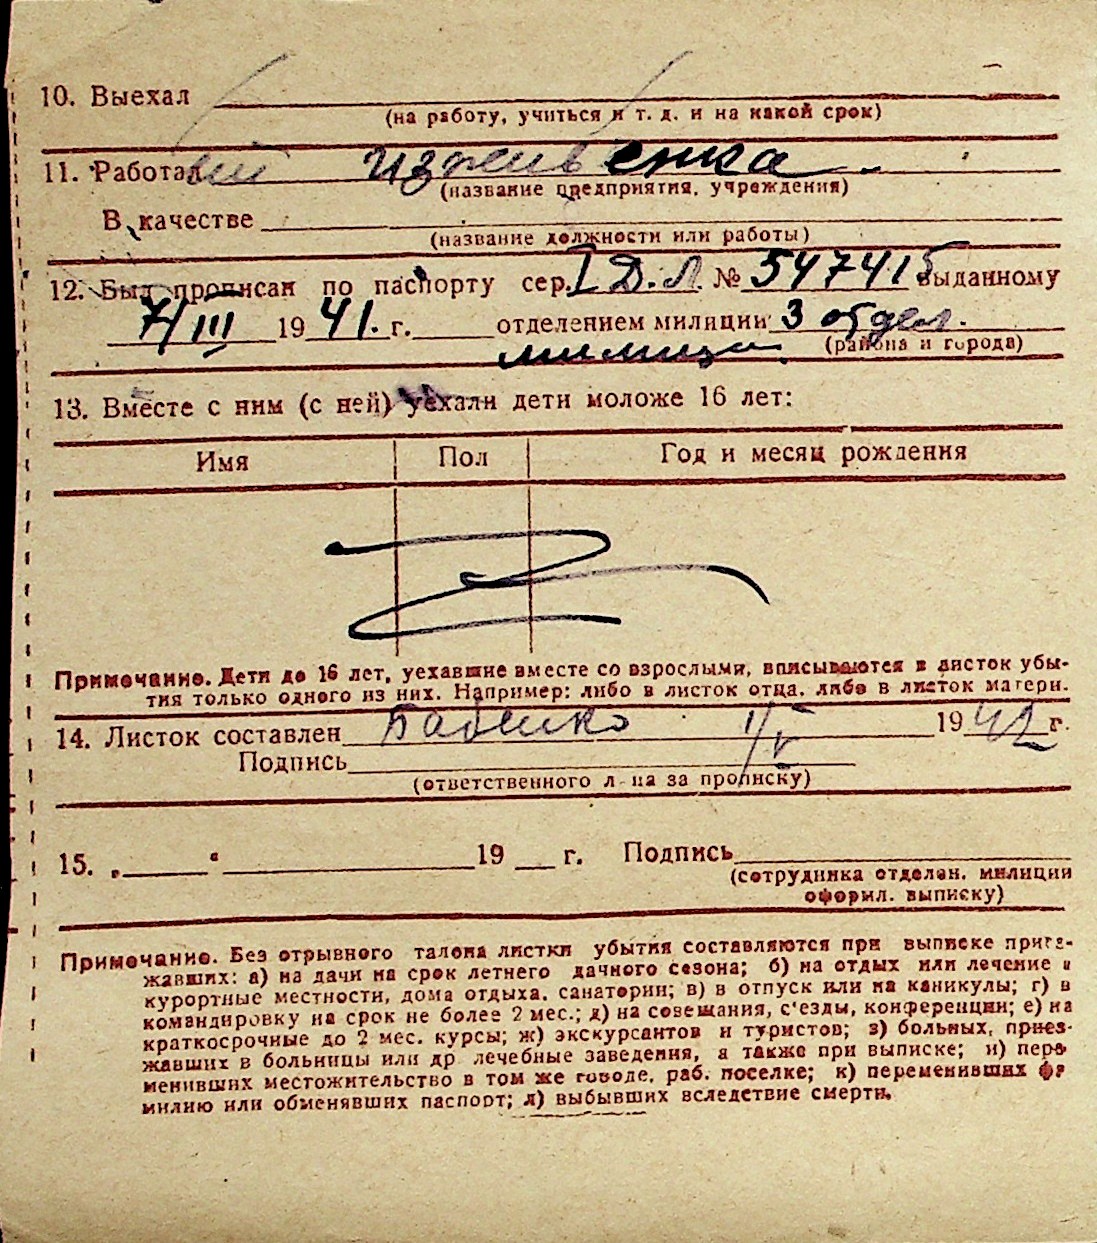 10. Выехал
(на работу, учиться и т. д. и на какой срок)
11. Работал иждивенка
(название предприятия, учреждения)
В качестве
(название должности или работы)
12. Был прописан по паспорту сер. I Д.Л. № 547415 выданному
7/III 1941. г. отделением милиции 3 отдел.
милиции (района и города)
13. Вместе с ним (с ней) уехали дети моложе 16 лет:
Имя Пол Год и месяц рождения
Примечание. Дети до 16 лет, уехавшие вместе со взрослыми, вписываются в листок убы-
тия только одного из них. Например: либо в листок отца, либо в листок матери.
14. Листок составлен 1/V 1942 г.
Подпись
(ответственного лица за прописку)
15. „ “ 19 г. Подпись
(сотрудника отделен. милиции
оформл. выписку)
Примечание. Без отрывного талона листки убытия составляются при выписке приез-
жавших: а) на дачи на срок летнего дачного сезона; б) на отдых или лечение в
курортные местности, дома отдыха, санатории; в) в отпуск или на каникулы; г) в
командировку на срок не более 2 мес.; д) на совещания, с'езды, конференции; е) на
краткосрочные до 2 мес. курсы; ж) экскурсантов и туристов; з) больных, приез-
жавших в больницы или др лечебные заведения, а также при выписке; и) пере
менивших местожительство в том же городе, раб. поселке; к) переменивших фа
милию или обменявших паспорт; л) выбывших вследствие смерти.